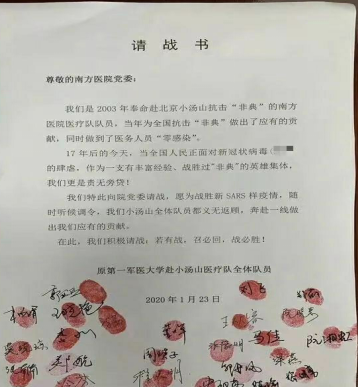 请战书
尊敬的南方医院党委：
我们是2003年奉命赴北京小汤山抗击“非典”的南方
医院医疗队队员，当年为全国抗击“非典”做出了应有的贡
献，同时做到了医务人员“零感染”。
17年后的今天，当全国人民正面对新冠状病毒（
的肆虐，作为一支有丰富经验、战胜过“非典”的英雄集体，
我们更是责无旁贷！
我们特此向院党委请战，愿为战胜新SARS样疫情，随
时听候调令，我们小汤山全体队员都义无返顾，奔赴一线做
出我们应有的贡献。
在此，我们积极请战：若有战，召必回，战必胜！
原第一军医大学赴小汤山医疗队全体队员
2020年1月23日